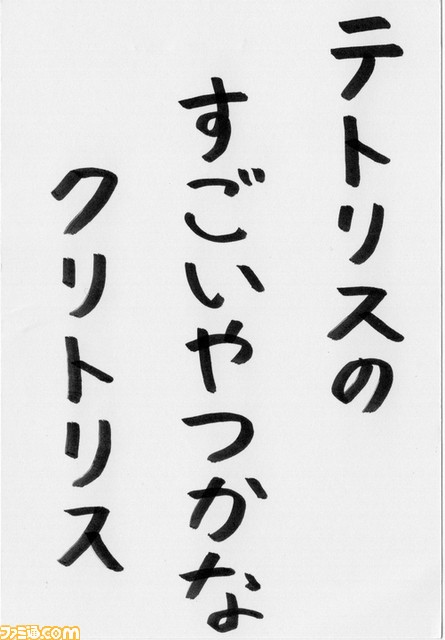 テトリスの
すごいやつかな
クリトリス
ファミ通.com